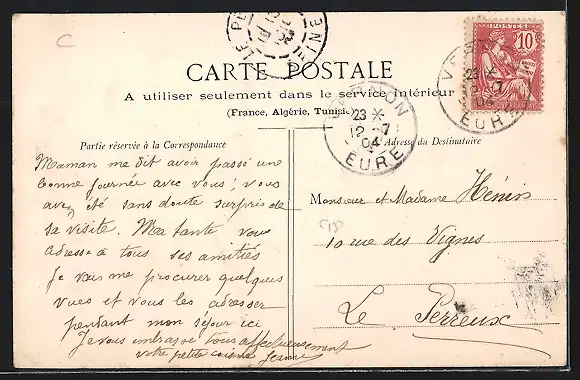 C
LE PE
INE
POSTES
10
VE
23 *
12 7
04
EURE
CARTE POSTALE
A utiliser seulement dans le service intérieur
(France, Algérie, Tunisie)
VERNON
23 *
12 -7
04
EURE
Partie réservée à la Correspondance
Adresse du Destinataire
Maman me dit avoir passé une
bonne journée avec vous ; vous
avez été sans doute surpris de
sa visite. Ma tante vous
adresse à tous ses amitiés
Je vais me procurer quelques
vues et vous les adresser
pendant mon séjour ici
Je vous embrasse tous affectueusement
votre petite cousine Jeanne
Monsieur et Madame Hénin
10 rue des Vignes
Le Perreux